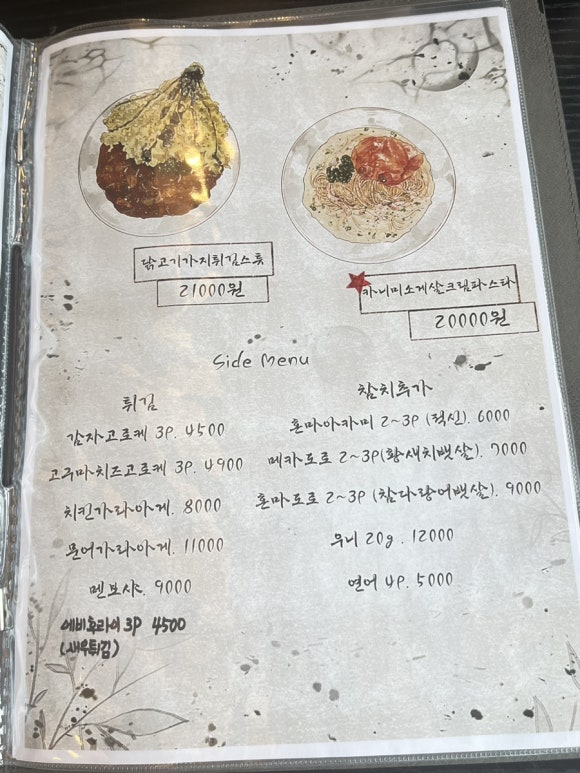 닭고기가지튀김스튜
21000원
카니미소게살크림파스타
20000원
Side Menu
튀김
감자고로케 3P. 4500
고구마치즈고로케 3P. 4900
치킨가라아게. 8000
문어가라아게. 11000
멘보샤. 9000
에비후라이 3P 4500
(새우튀김)
참치추가
혼마아카미 2~3P (적신). 6000
메카도로 2~3P(황새치뱃살). 7000
혼마도로 2~3P (참다랑어뱃살). 9000
우니 20g . 12000
연어 4P. 5000